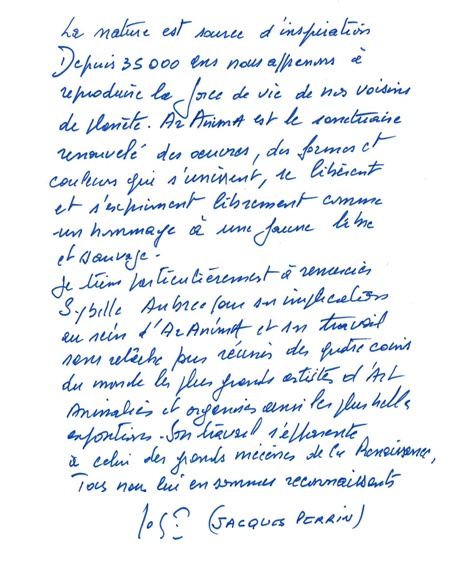 La nature est source d'inspiration
Depuis 35000 ans nous apprenons à
reproduire la force de vie de nos voisins
de planète. ArAnimA est le sanctuaire
renouvelé des oeuvres, des formes et
couleurs qui s'unissent, se libèrent
et s'expriment librement comme
un hommage à une faune libre
et sauvage.
Je tiens particulièrement à remercier
Sybille Aubree pour son implication
au sein d'ArAnimA et son travail
sans relâche pour réunir des quatre coins
du monde les plus grands artistes d'Art
Animaliers et organiser ainsi les plus belles
expositions. Son travail s'apparente
à celui des grands mécènes de la Renaissance,
Tous nous lui en sommes reconnaissants
(JACQUES PERRIN)